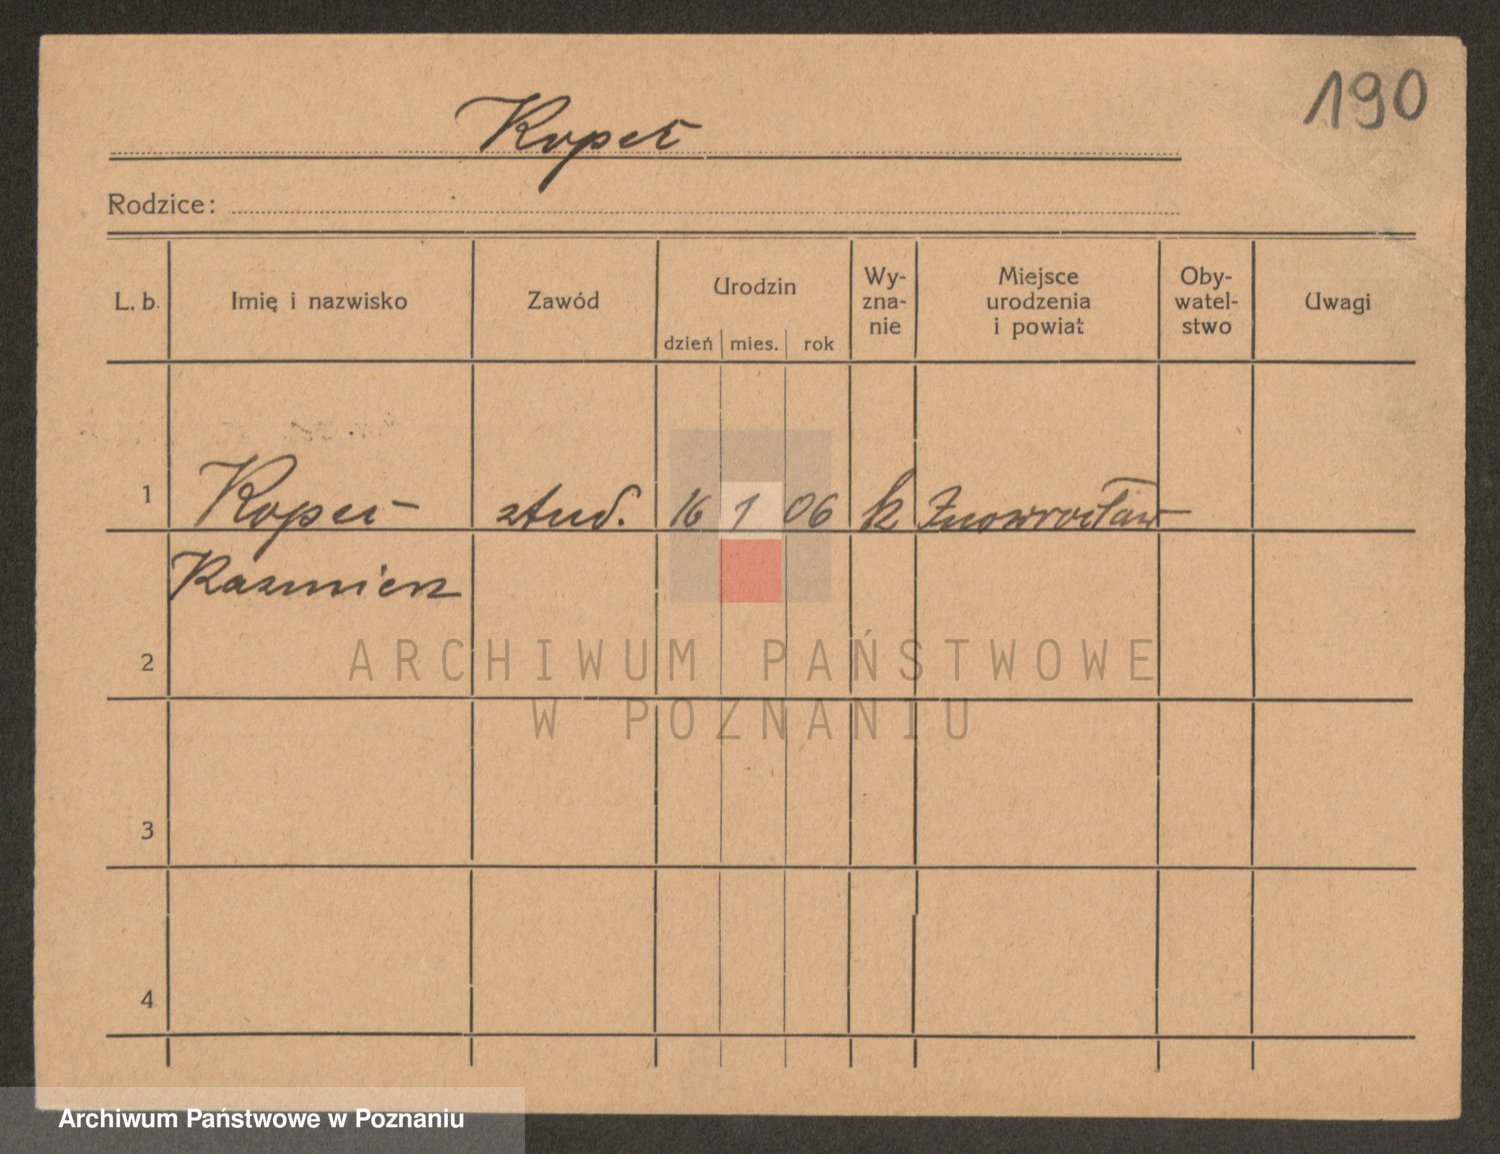 190
Kopeć
Rodzice:
L. b.
Imię i nazwisko
Zawód
Urodzin
dzień mies. rok
Wy-
zna-
nie
Miejsce
urodzenia
i powiat
Oby-
watel-
stwo
Uwagi
1 Kopeć stud. 16 1 06 k Inowrocław
Kazmierz
2
3
4
ARCHIWUM PAŃSTWOWE
W POZNANIU
Archiwum Państwowe w Poznaniu